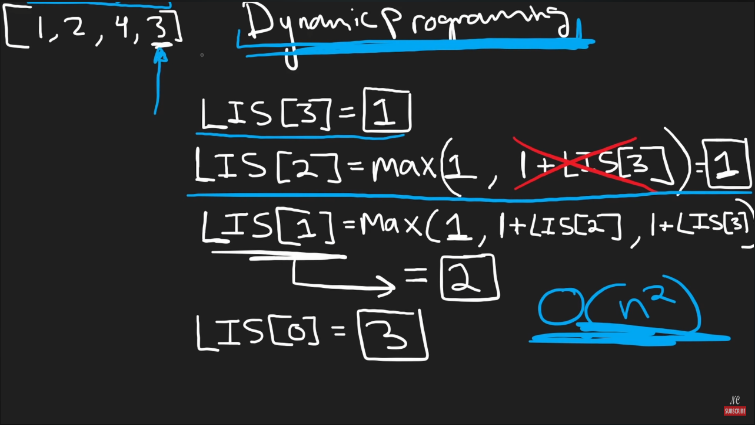 [1, 2, 4, 3]
Dynamic Programing
LIS[3] = 1
LIS[2] = max(1, 1+LIS[3]) = 1
LIS[1] = Max(1, 1+LIS[2], 1+LIS[3])
= 2
O(n²)
LIS[0] = 3
Ne
SUBSCRIBE